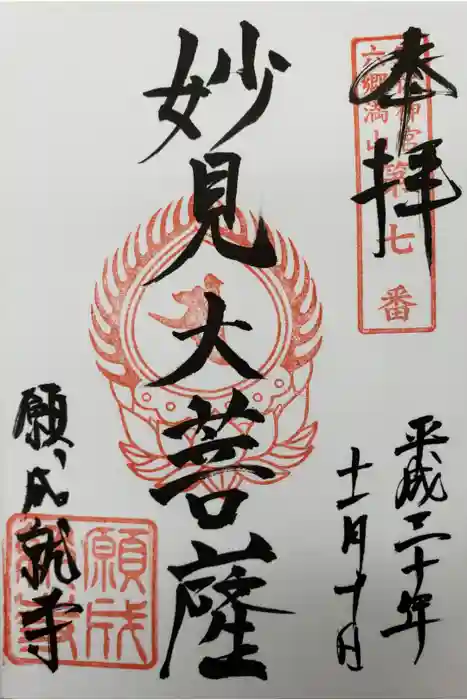 奉拝
六郷満山
神宮
第七番
平成三十年
十一月十日
妙見大菩薩
願成就寺
願成